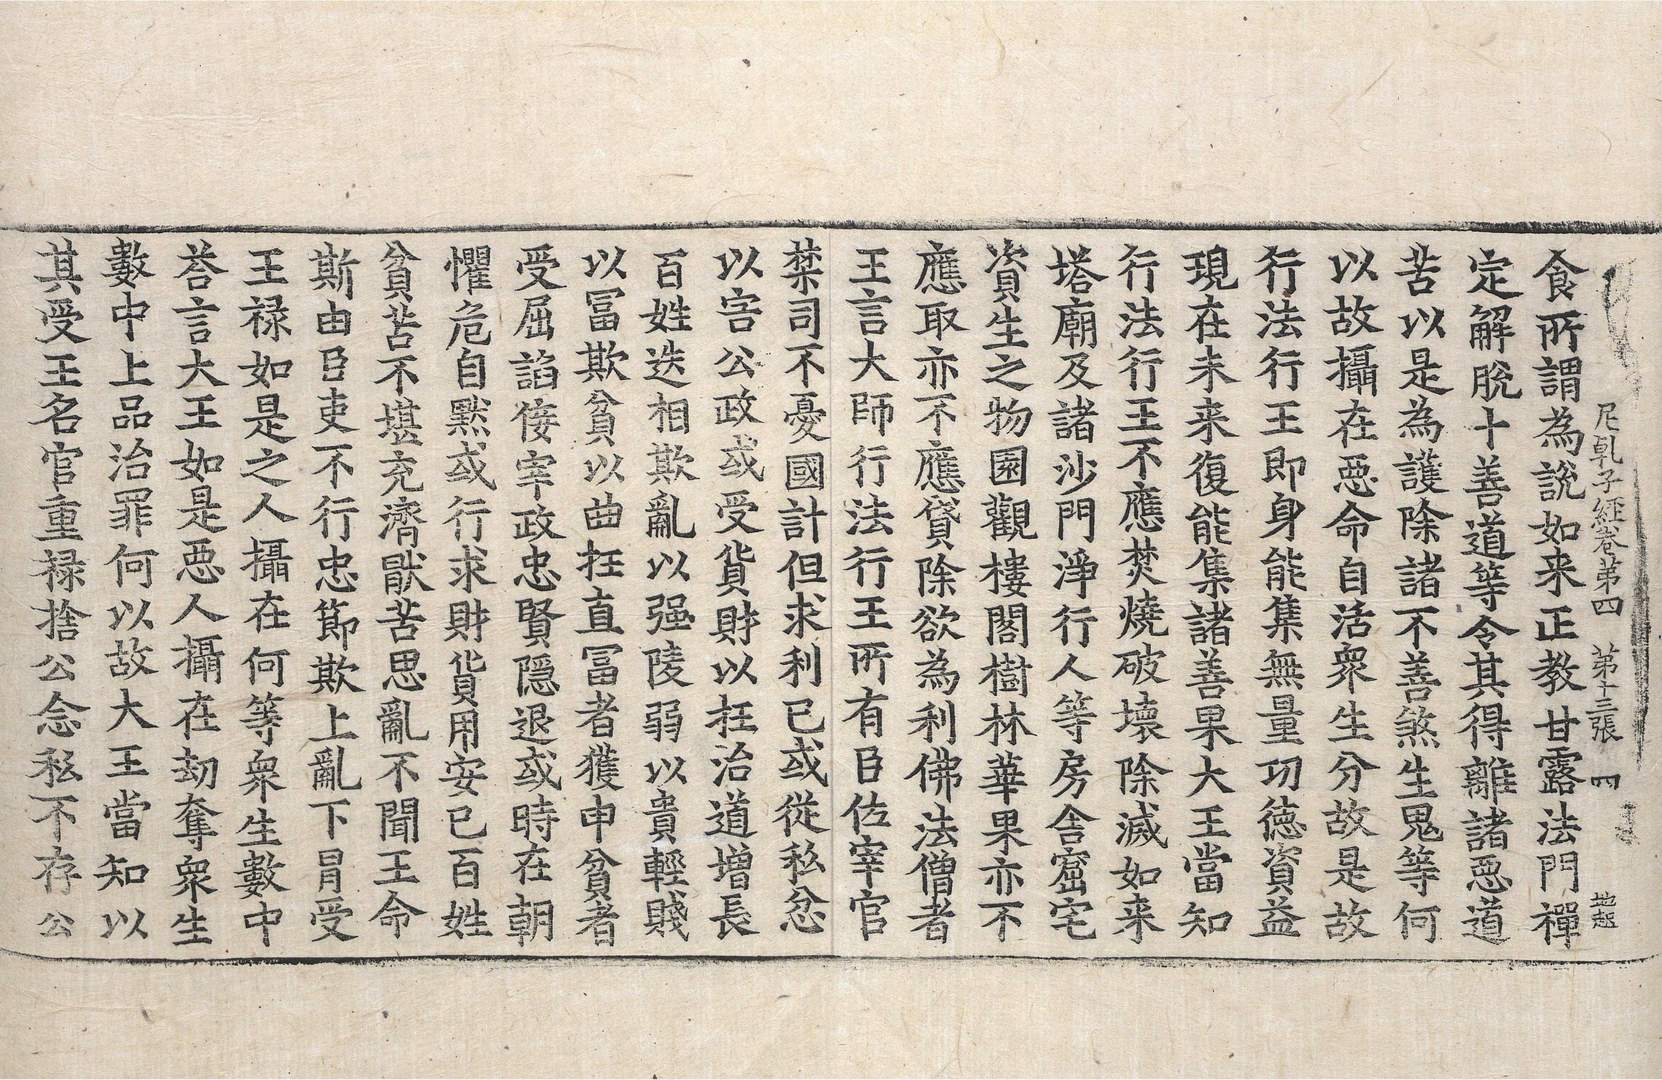 尼乹子經卷第四 第十三張 四 地越
食所謂為說如来正教甘露法門禪
定解脫十善道等令其得離諸惡道
苦以是為護除諸不善煞生鬼等何
以故攝在惡命自活衆生分故是故
行法行王即身能集無量功德資益
現在未来復能集諸善果大王當知
行法行王不應焚燒破壞除滅如来
塔廟及諸沙門淨行人等房舍窟宅
資生之物園觀樓閣樹林華果亦不
應取亦不應貸除欲為利佛法僧者
王言大師行法行王所有臣佐宰官
禁司不憂國計但求利已或從私忿
以害公政或受貨財以枉治道增長
百姓迭相欺亂以强陵弱以貴輕賤
以冨欺貧以曲枉直冨者獲申貧者
受屈諂侫宰政忠賢隱退或時在朝
懼危自默或行求財貨用安已百姓
貧苦不堪充濟猒苦思亂不聞王命
斯由臣吏不行忠節欺上亂下冐受
王禄如是之人攝在何等衆生數中
荅言大王如是惡人攝在劫奪衆生
數中上品治罪何以故大王當知以
其受王名官重禄捨公念私不存公